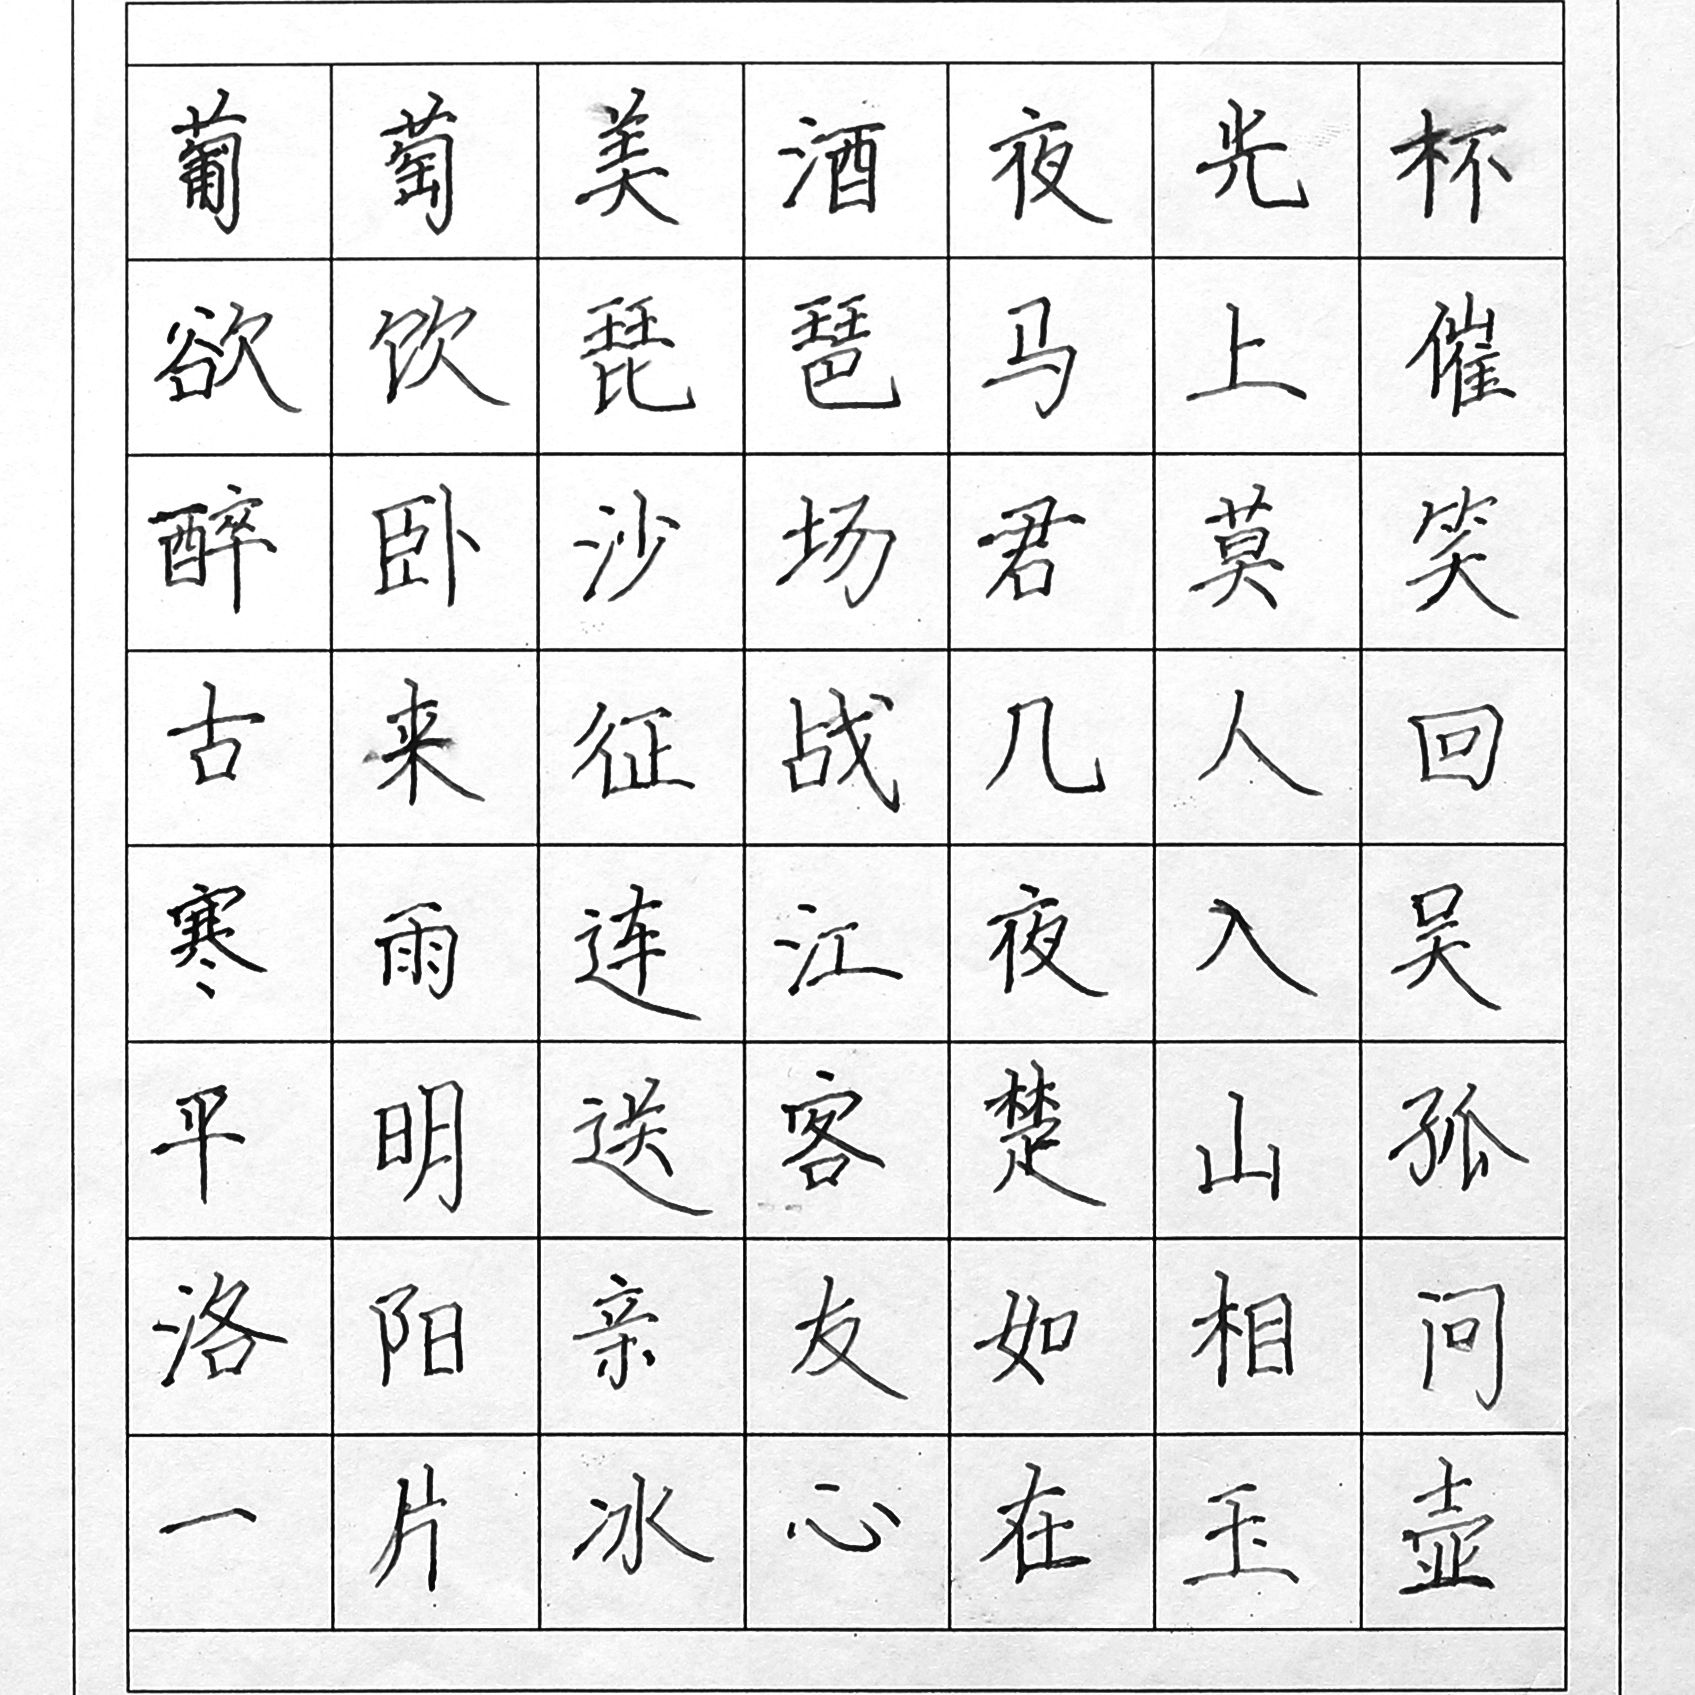 葡萄美酒夜光杯
欲饮琵琶马上催
醉卧沙场君莫笑
古来征战几人回
寒雨连江夜入吴
平明送客楚山孤
洛阳亲友如相问
一片冰心在玉壶